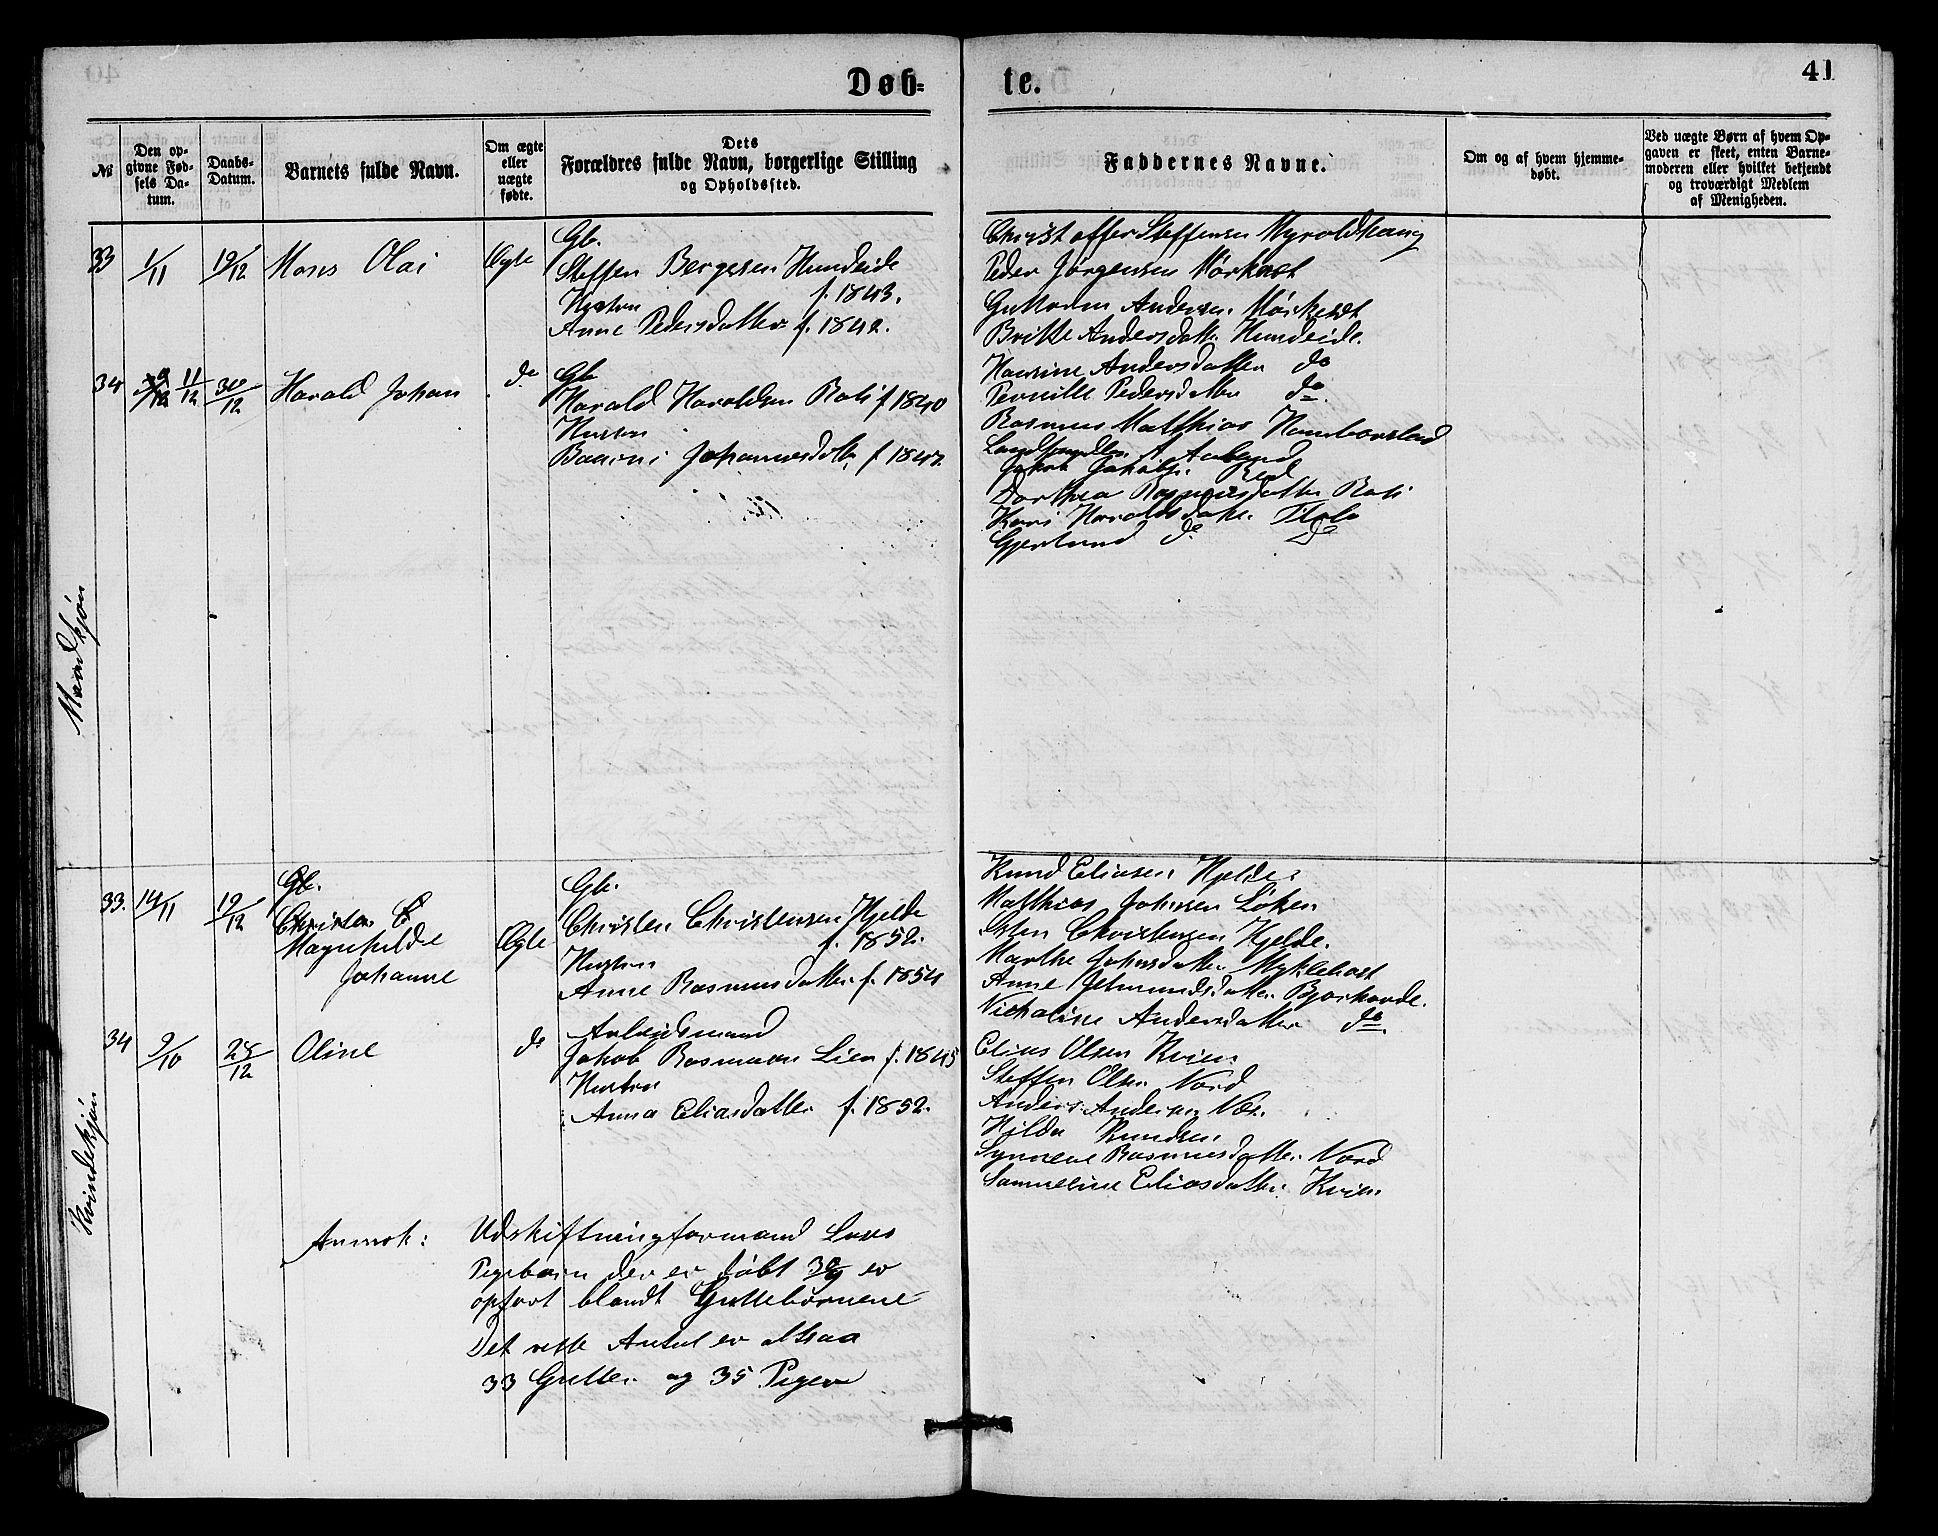 Døb-
te.
41
No
Den opgivne Fødsels Datum.
Daabs-Datum.
Barnets fulde Navn.
Om ægte eller uægte fødte.
Dets Forældres fulde Navn, borgerlige Stilling og Opholdssted.
Faddernes Navne.
Om og af hvem hjemmedøbt.
Ved uægte Børn af hvem Opgaven er skeet, enten Barnemoderen eller hvilket bekjendt og troværdigt Medlem af Menigheden.
Mandkjøn
33 1/11 19/12 Mons Olai Ægte
Gb.
Steffen Bergesen Hundeide
f. 1843.
Hustru
Anne Pedersdatter f. 1842.
Christoffer Steffensen Myroldhaug
Peder Jørgensen Mørkest
Guttorm Andersen Mørkest
Britte Andersdatter Hundeide.
Hansine Andersdatter do
Pernille Pedersdatter do.
34 11/12 30/12 Harald Johan do
Gb
Harald Haraldsen Roti f 1840
Hustru
Johannesdatter f 184
Rasmus Matthias
Jakob Jakobsen
Dorthea Rasmusdatter Roti
Kari Haraldsdatter
Gjertrud do do
Kvindekjøn
33. 14/11 19/12
Gb.
Christen C
Magnhilde
Johanne
Ægte
Gb.
Christen Christensen Hjelde
f. 1852.
Hustru
Anne Rasmusdatter f. 1854
Knud Eliasen Hjelde
Matthias Johnsen Løken
Sten Christensen Hjelde.
Marthe Johnsdatter Myklebost
Anne Jetmundsdatter Bjørhovde.
Nicholine Andersdatter do.
34 9/10 28/12 Oline do
Arbeidsmand
Jakob Rasmusen Lien f. 1845
Hustru
Anna Eliasdatter f. 1852.
Elias Olsen Kvien
Steffen Olsen Nord
Anders Andersen Nes.
Hilda Knudsen
Synneve Rasmusdatter Nord
Samueline Eliasdatter Kvien
Anmrk: Udskiftningformand
Pigebarn der er døbt 30/9 er
opført blandt Guttebørnene
Det rette Antal er altsaa
33 Gutter og 35 Piger